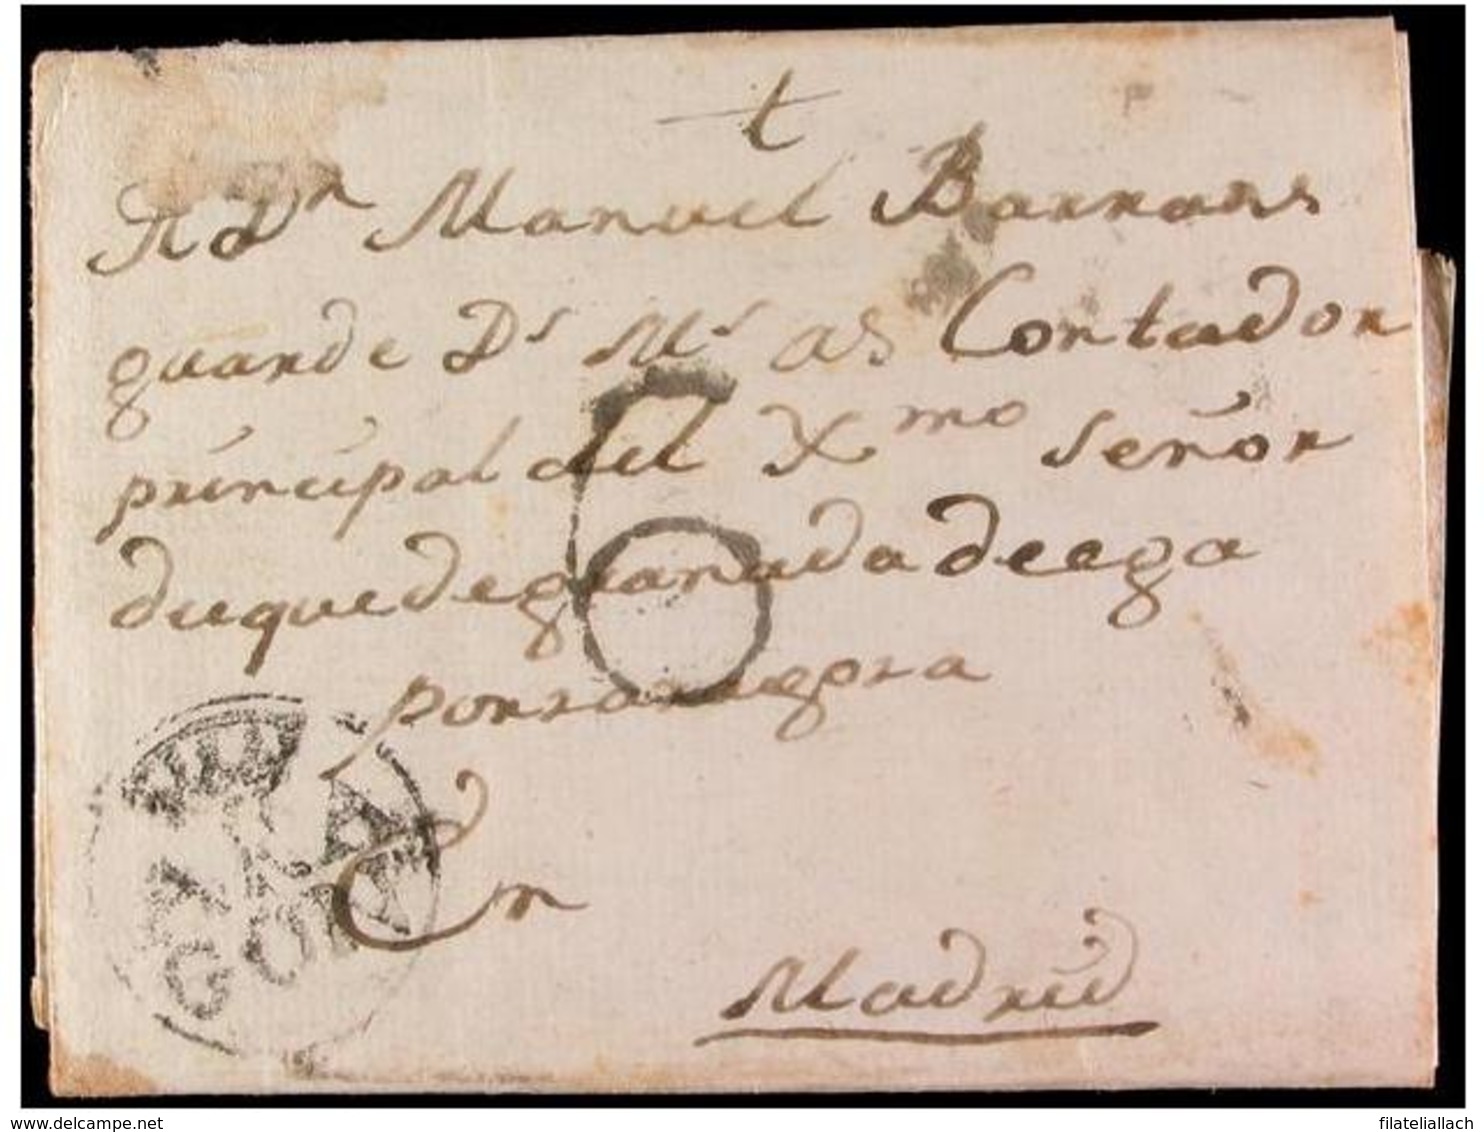 t
A Dn Manuel Barrans
guarde Ds Ms as Contador
principal del Xmo señor
duquedegranada deega
6
porzaragoza
En
Madrid
ARA
GON
delcampe.net
filateliallach